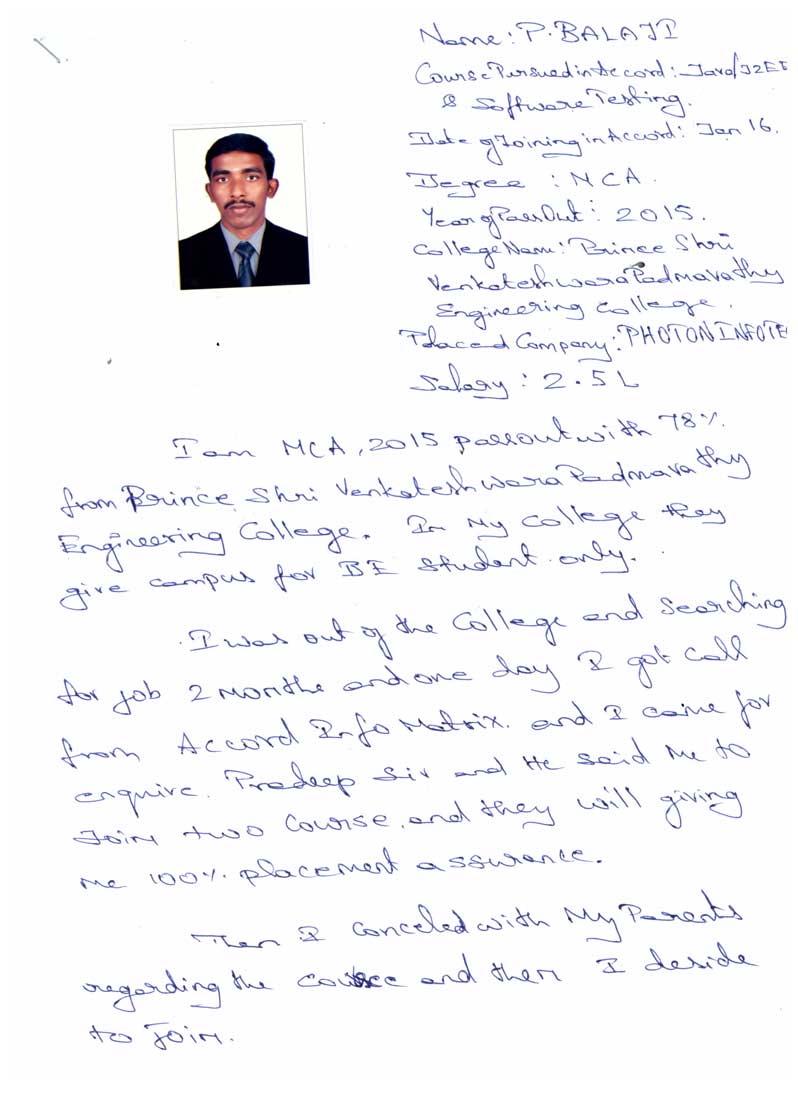 Name: P. BALAJI
Course Persued in Accord: Java/J2EE
& Software Testing.
Date of Joining in Accord: Jan 16.
Degree : MCA.
Year of Pass Out: 2015.
College Name: Prince Shri
Venkateshwara Padmavathy
Engineering College.
Placed Company: PHOTON INFOTE
Salary : 2.5 L
I am MCA, 2015 passout with 78%
from Prince Shri Venkateshwara Padmavathy
Engineering College. In My College they
give campus for BE student only.
I was out of the College and Searching
for job 2 months and one day I got call
from Accord Info Matrix. and I came for
enquire. Pradeep Sir and He said me to
Join two Course. and they will giving
me 100% placement assurance.
Then I Conceled with My Parents
regarding the course and then I deside
to Join.